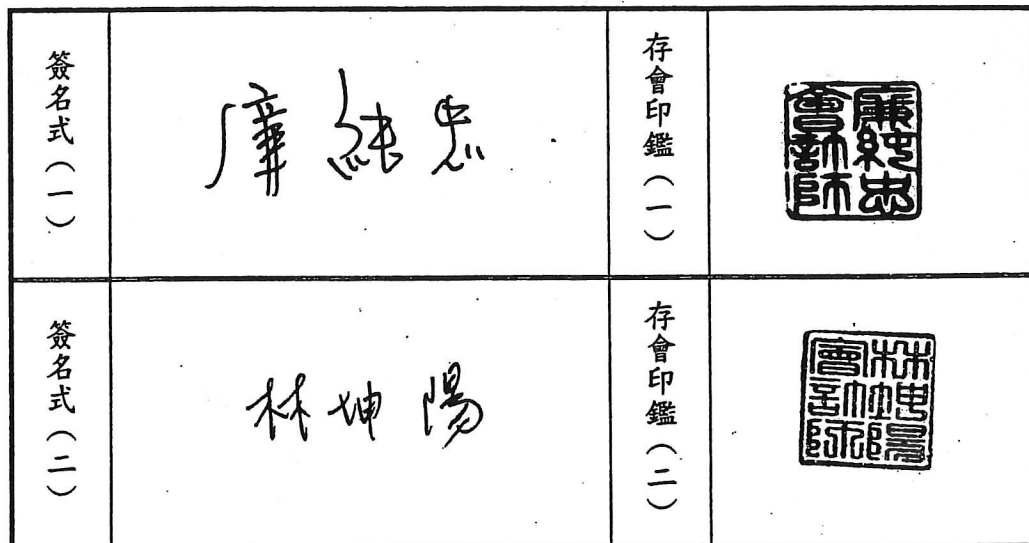 簽名式（一）
廉純忠
存會印鑑（一）
廉純忠會計師
簽名式（二）
林坤陽
存會印鑑（二）
林坤陽會計師